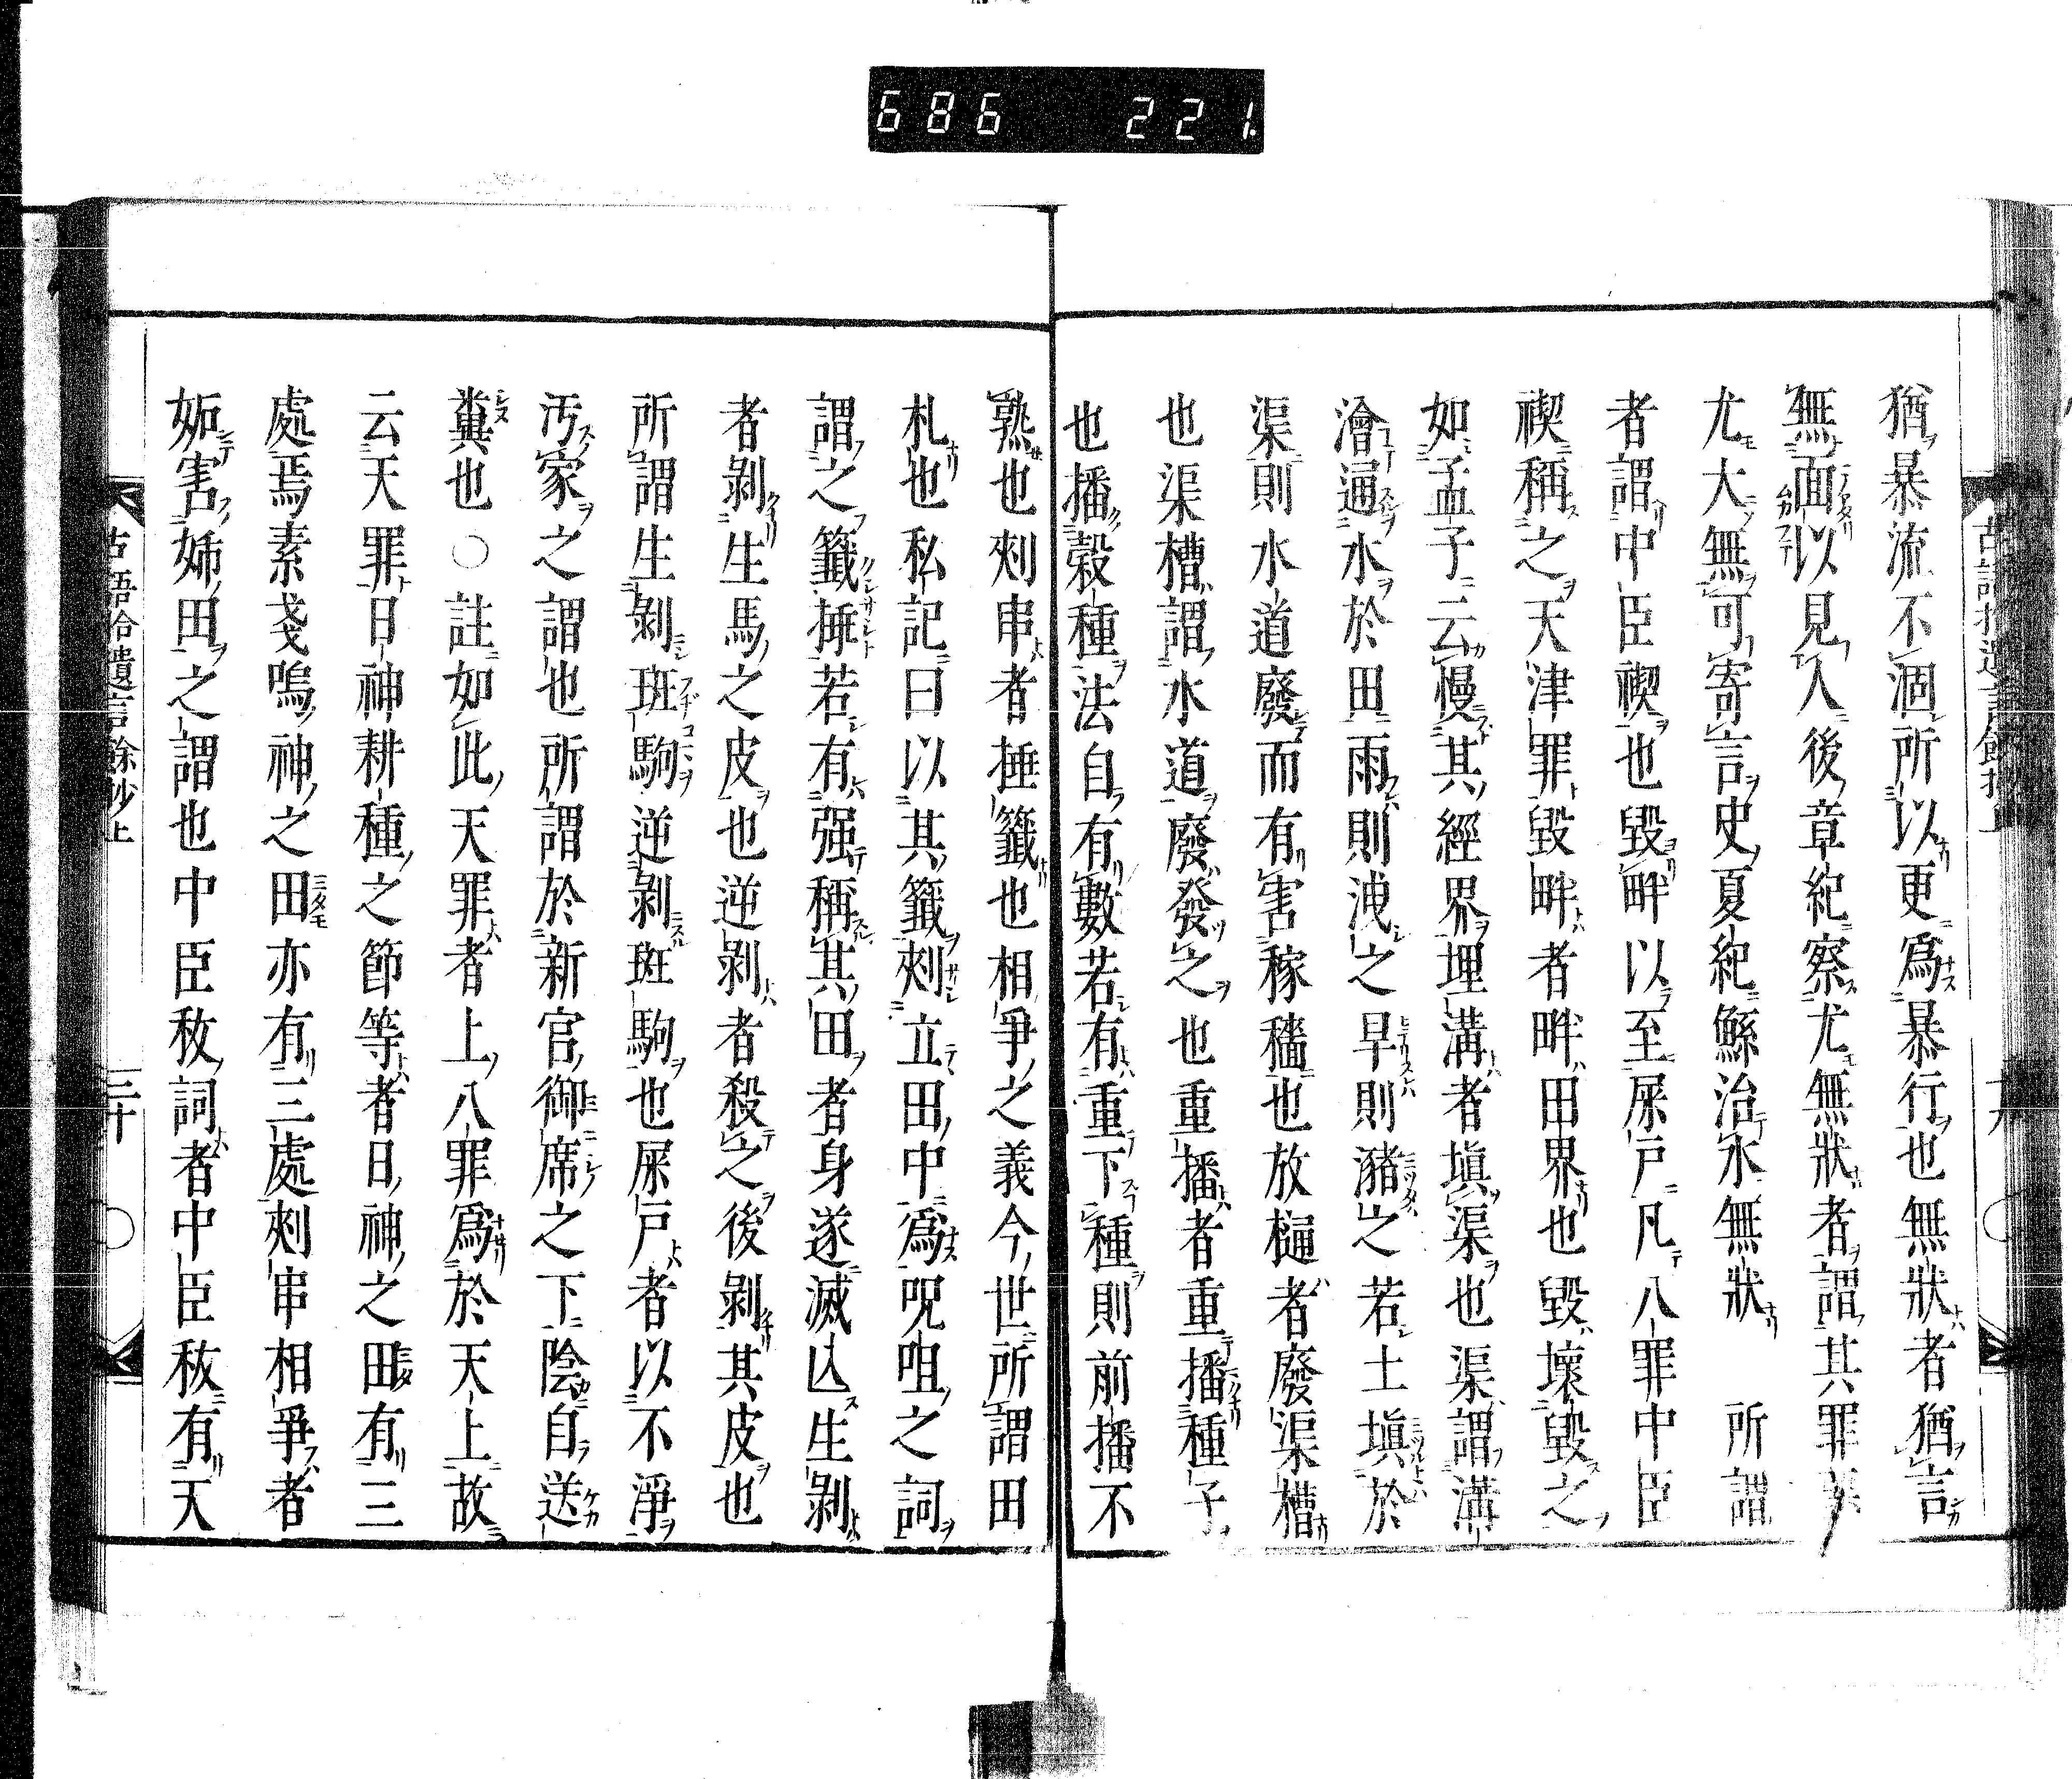 686 221
猶暴流不涸所以更爲暴行也無狀者猶言
無面以見人後章紀察尤無狀者謂其罪
尤大無可寄言史夏紀鯀治水無狀 所謂
者謂中臣禊也毀畔以至屎戸凡八罪中臣
禊稱之天津罪毀畔者畔田界也毀壞毀之
如孟子云慢其經界埋溝者塡渠也渠謂溝
澮通水於田雨則洩之旱則瀦之若土塡於
渠則水道廢而有害稼穡也放樋者廢渠槽
也渠槽謂水道廢發之也重播者重播種子
也播穀種法自有數若有重下種則前播不
熟也刺串者捶籤也相爭之義今世所謂田
札也私記曰以其籤刺立田中爲呪咀之詞
謂之籤捶若有强稱其田者身遂滅亾生剥
者剥生馬之皮也逆剥者殺之後剥其皮也
所謂生剥斑駒逆剥斑駒也屎戸者以不淨
汚家之謂也所謂於新官御席之下陰自送
糞也○註如此天罪者上八罪爲於天上故
云天罪日神耕種之節等者日神之田有三
處焉素戔嗚神之田亦有三處刺串相爭者
妬害姉田之謂也中臣秡詞者中臣秡有天
古語拾遺言餘抄上 三十